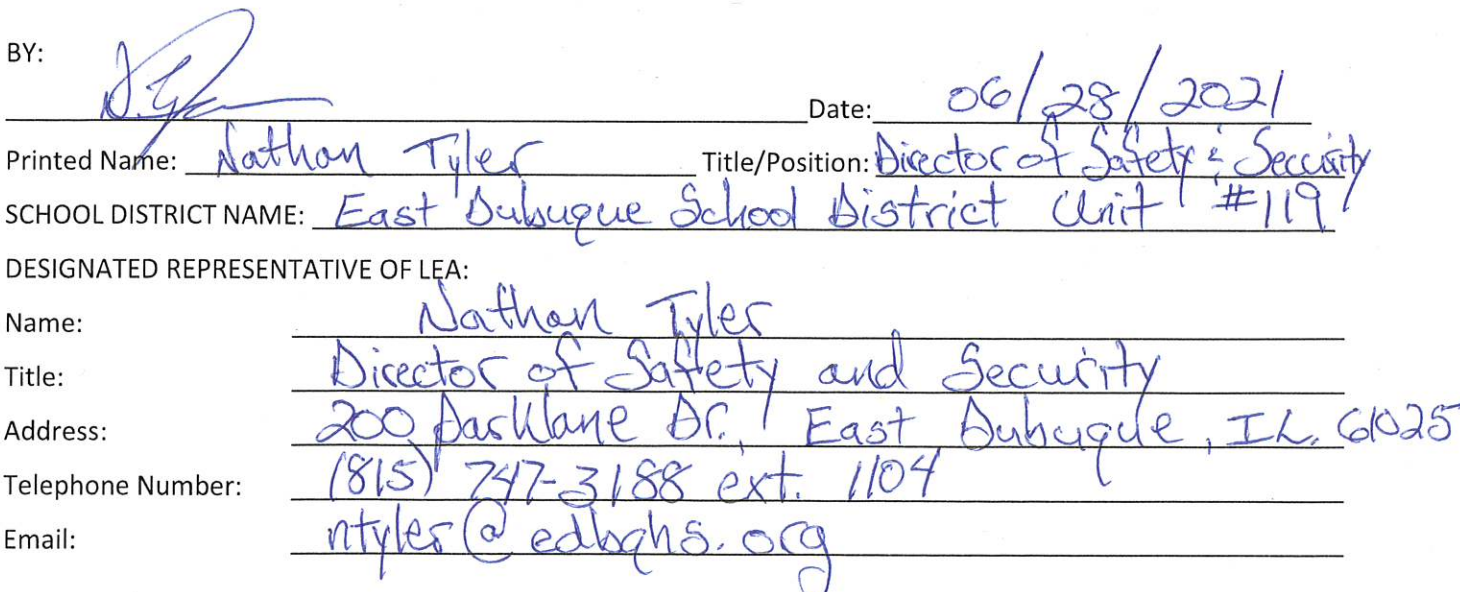 BY:
Date: 06/28/2021
Printed Name: Nathan Tyler Title/Position: Director of Safety & Security
SCHOOL DISTRICT NAME: East Dubuque School District Unit #119
DESIGNATED REPRESENTATIVE OF LEA:
Name: Nathan Tyler
Title: Director of Safety and Security
Address: 200 Parklane Dr., East Dubuque, IL. 61025
Telephone Number: (815) 747-3188 ext. 1104
Email: ntyler@edbqhs.org